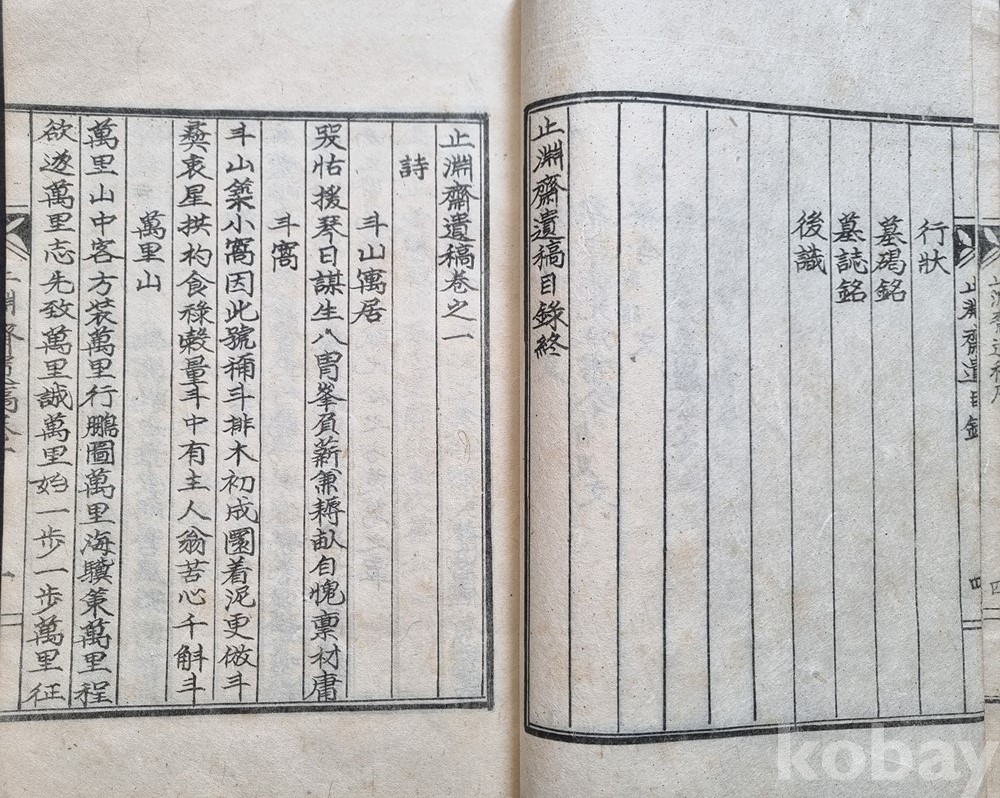 止淵齋遺稿序
四
止淵齋遺目錄
四
行狀
墓碣銘
墓誌銘
後識
止淵齋遺稿目錄終
止淵齋遺稿卷之一
詩
斗山寓居
受怙援琴日謀生八胄峯負薪兼耨畝自愧稟材庸
斗窩
斗山築小窩因此號稱斗排木初成圍着泥更倣斗
彛衷星拱杓食祿穀量斗中有主人翁苦心千斛斗
萬里山
萬里山中客方裝萬里行鵬圖萬里海驥策萬里程
欲遂萬里志先致萬里誠萬里始一步一步萬里征
止淵齋遺稿卷之一
一
kobay